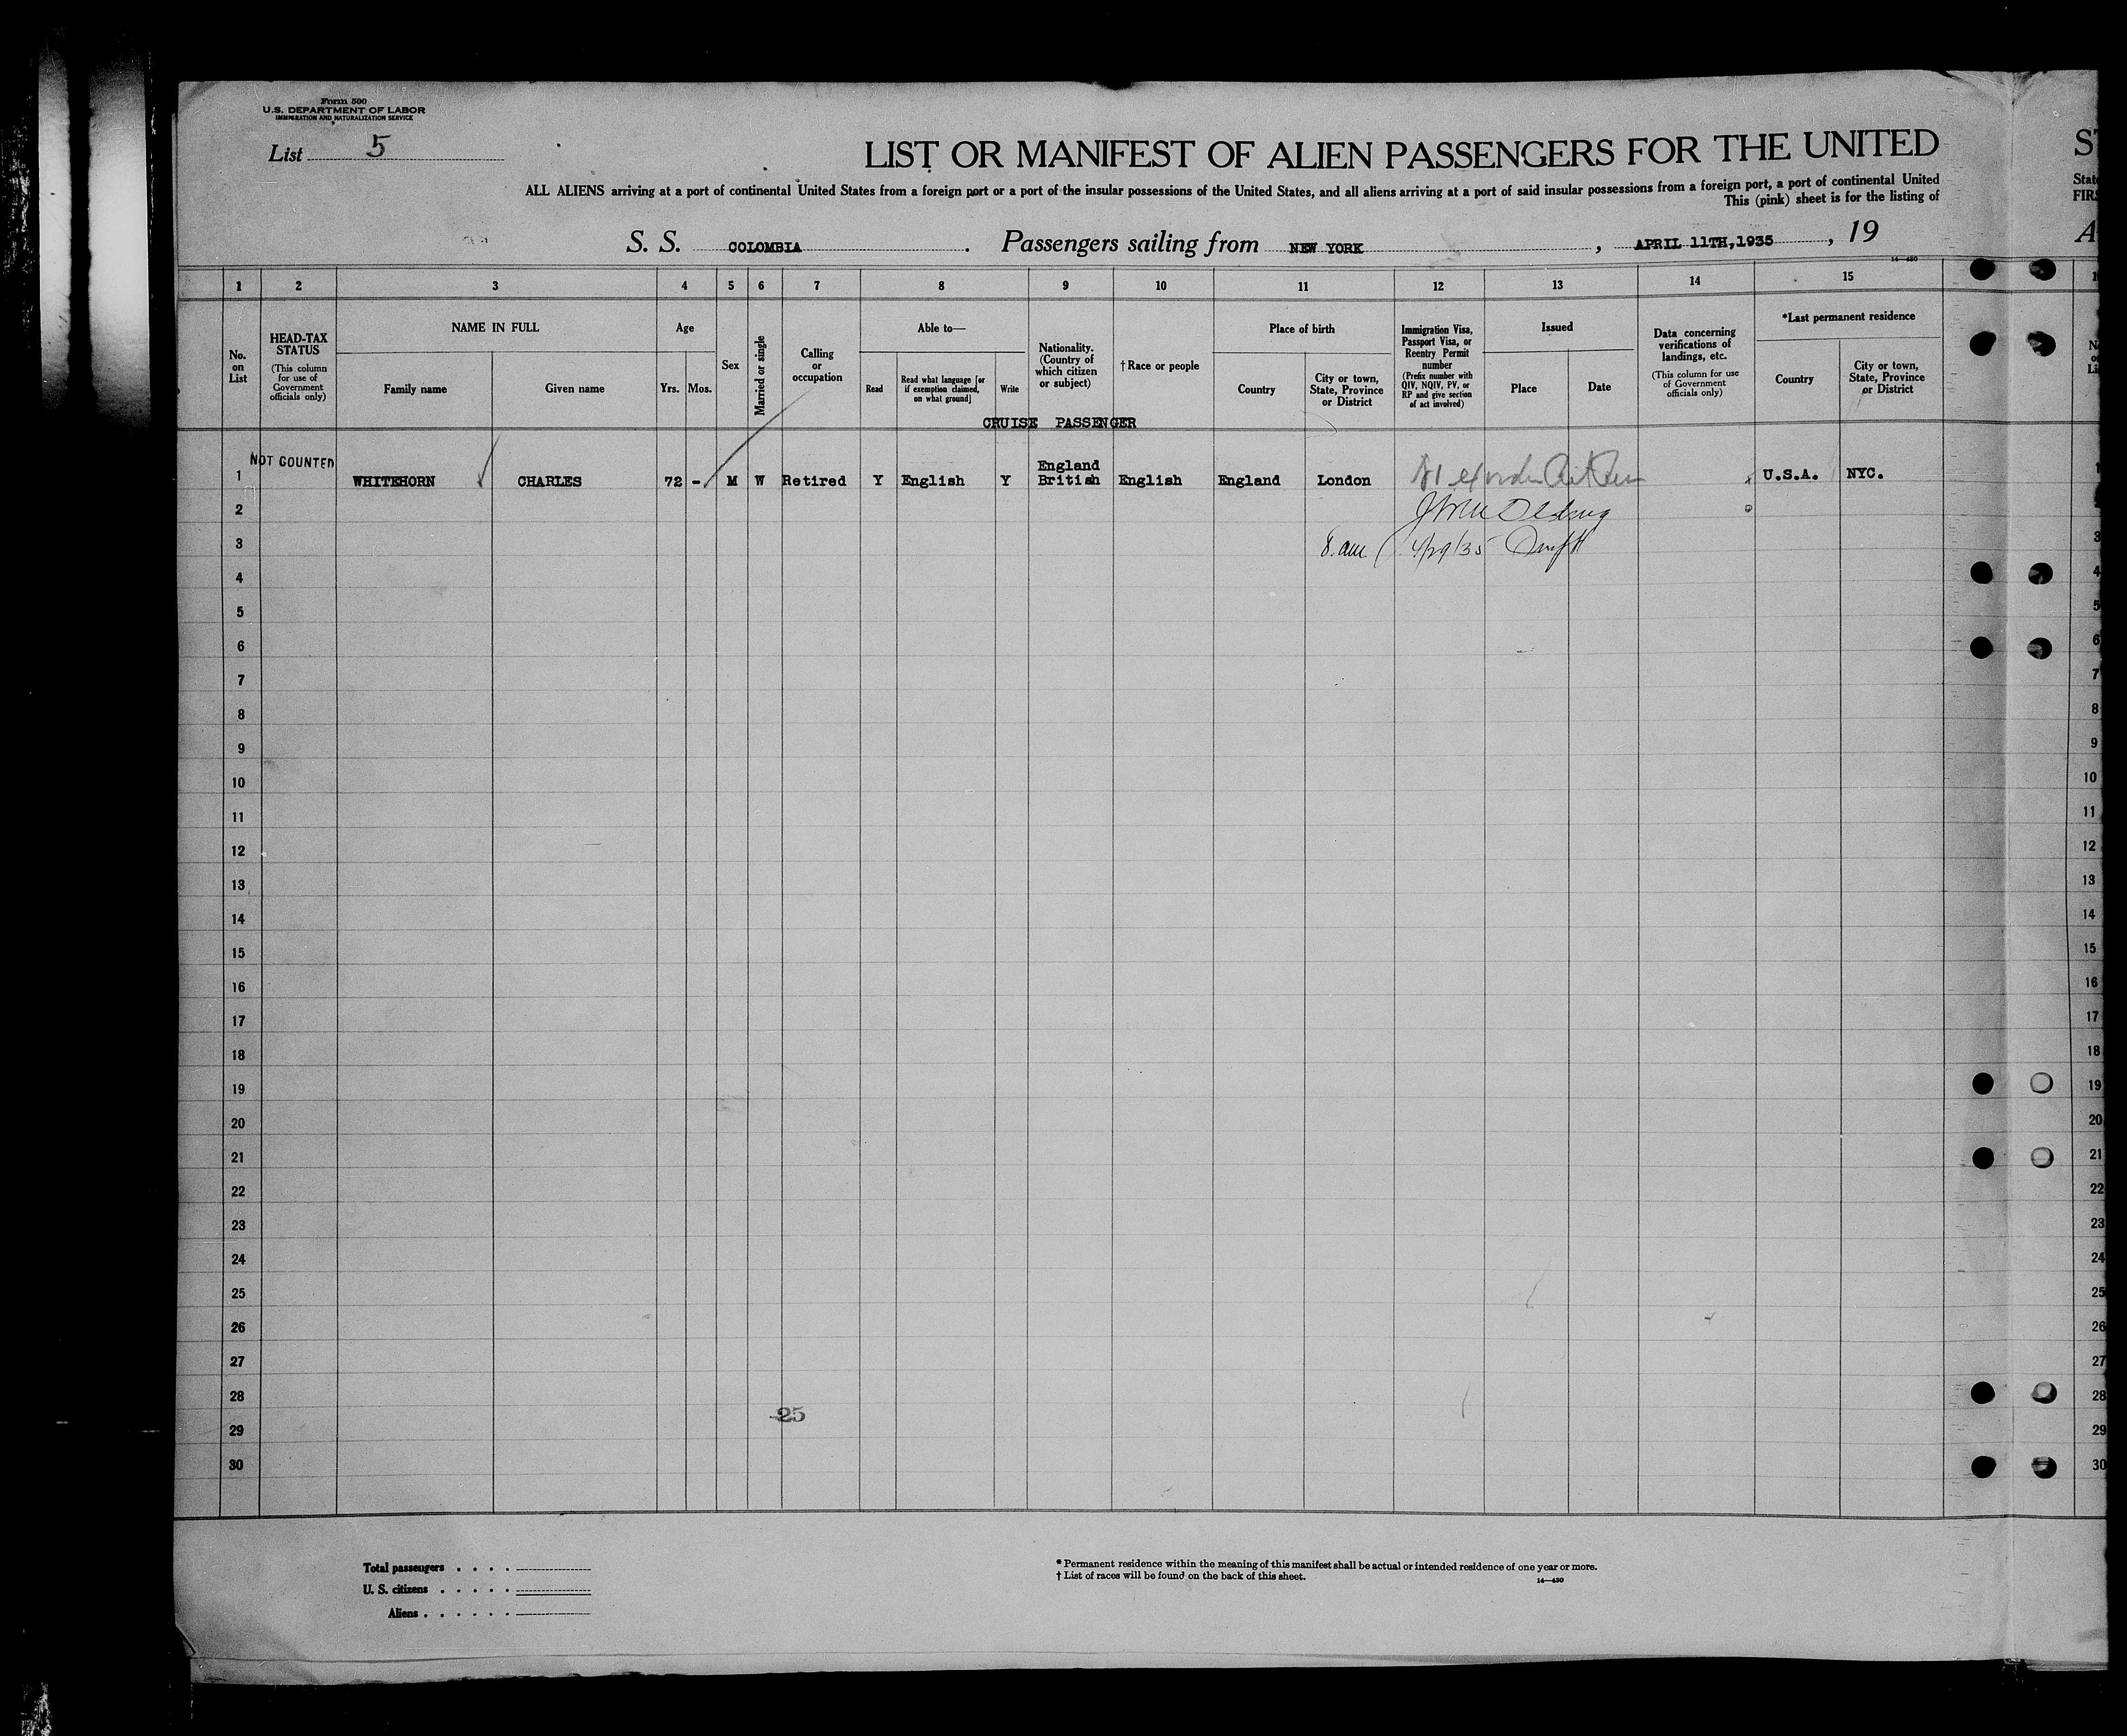 Form 500
U.S. DEPARTMENT OF LABOR
IMMIGRATION AND NATURALIZATION SERVICE
List 5
LIST OR MANIFEST OF ALIEN PASSENGERS FOR THE UNITED
ST
ALL ALIENS arriving at a port of continental United States from a foreign port or a port of the insular possessions of the United States, and all aliens arriving at a port of said insular possessions from a foreign port, a port of continental United
State
This (pink) sheet is for the listing of
FIRS
S. S. COLOMBIA . Passengers sailing from NEW YORK , APRIL 11TH,1935 , 19
A
14—430
1 2 3 4 5 6 7 8 9 10 11 12 13 14 15
No. on List
HEAD-TAX STATUS
(This column for use of Government officials only)
NAME IN FULL
Family name
Given name
Age
Yrs.
Mos.
Sex
Married or single
Calling or occupation
Able to—
Read
Read what language [or if exemption claimed, on what ground]
Write
Nationality. (Country of which citizen or subject)
† Race or people
Place of birth
Country
City or town, State, Province or District
Immigration Visa, Passport Visa, or Reentry Permit number
(Prefix number with QIV, NQIV, PV, or RP and give section of act involved)
Issued
Place
Date
Data concerning verifications of landings, etc.
(This column for use of Government officials only)
*Last permanent residence
Country
City or town, State, Province or District
CRUISE PASSENGER
NOT COUNTED
England
1 WHITEHORN CHARLES 72 - M W Retired Y English Y British English England London U.S.A. NYC. 1
2
3 8. am 4/29/35 3
4 4
5 5
6 6
7 7
8 8
9 9
10 10
11 11
12 12
13 13
14 14
15 15
16 16
17 17
18 18
19 19
20 20
21 21
22 22
23 23
24 24
25 25
26 26
27 27
28 28
25
29 29
30 30
Total passengers . . . .
U. S. citizens . . . . .
Aliens . . . . . .
* Permanent residence within the meaning of this manifest shall be actual or intended residence of one year or more.
† List of races will be found on the back of this sheet.
14—430